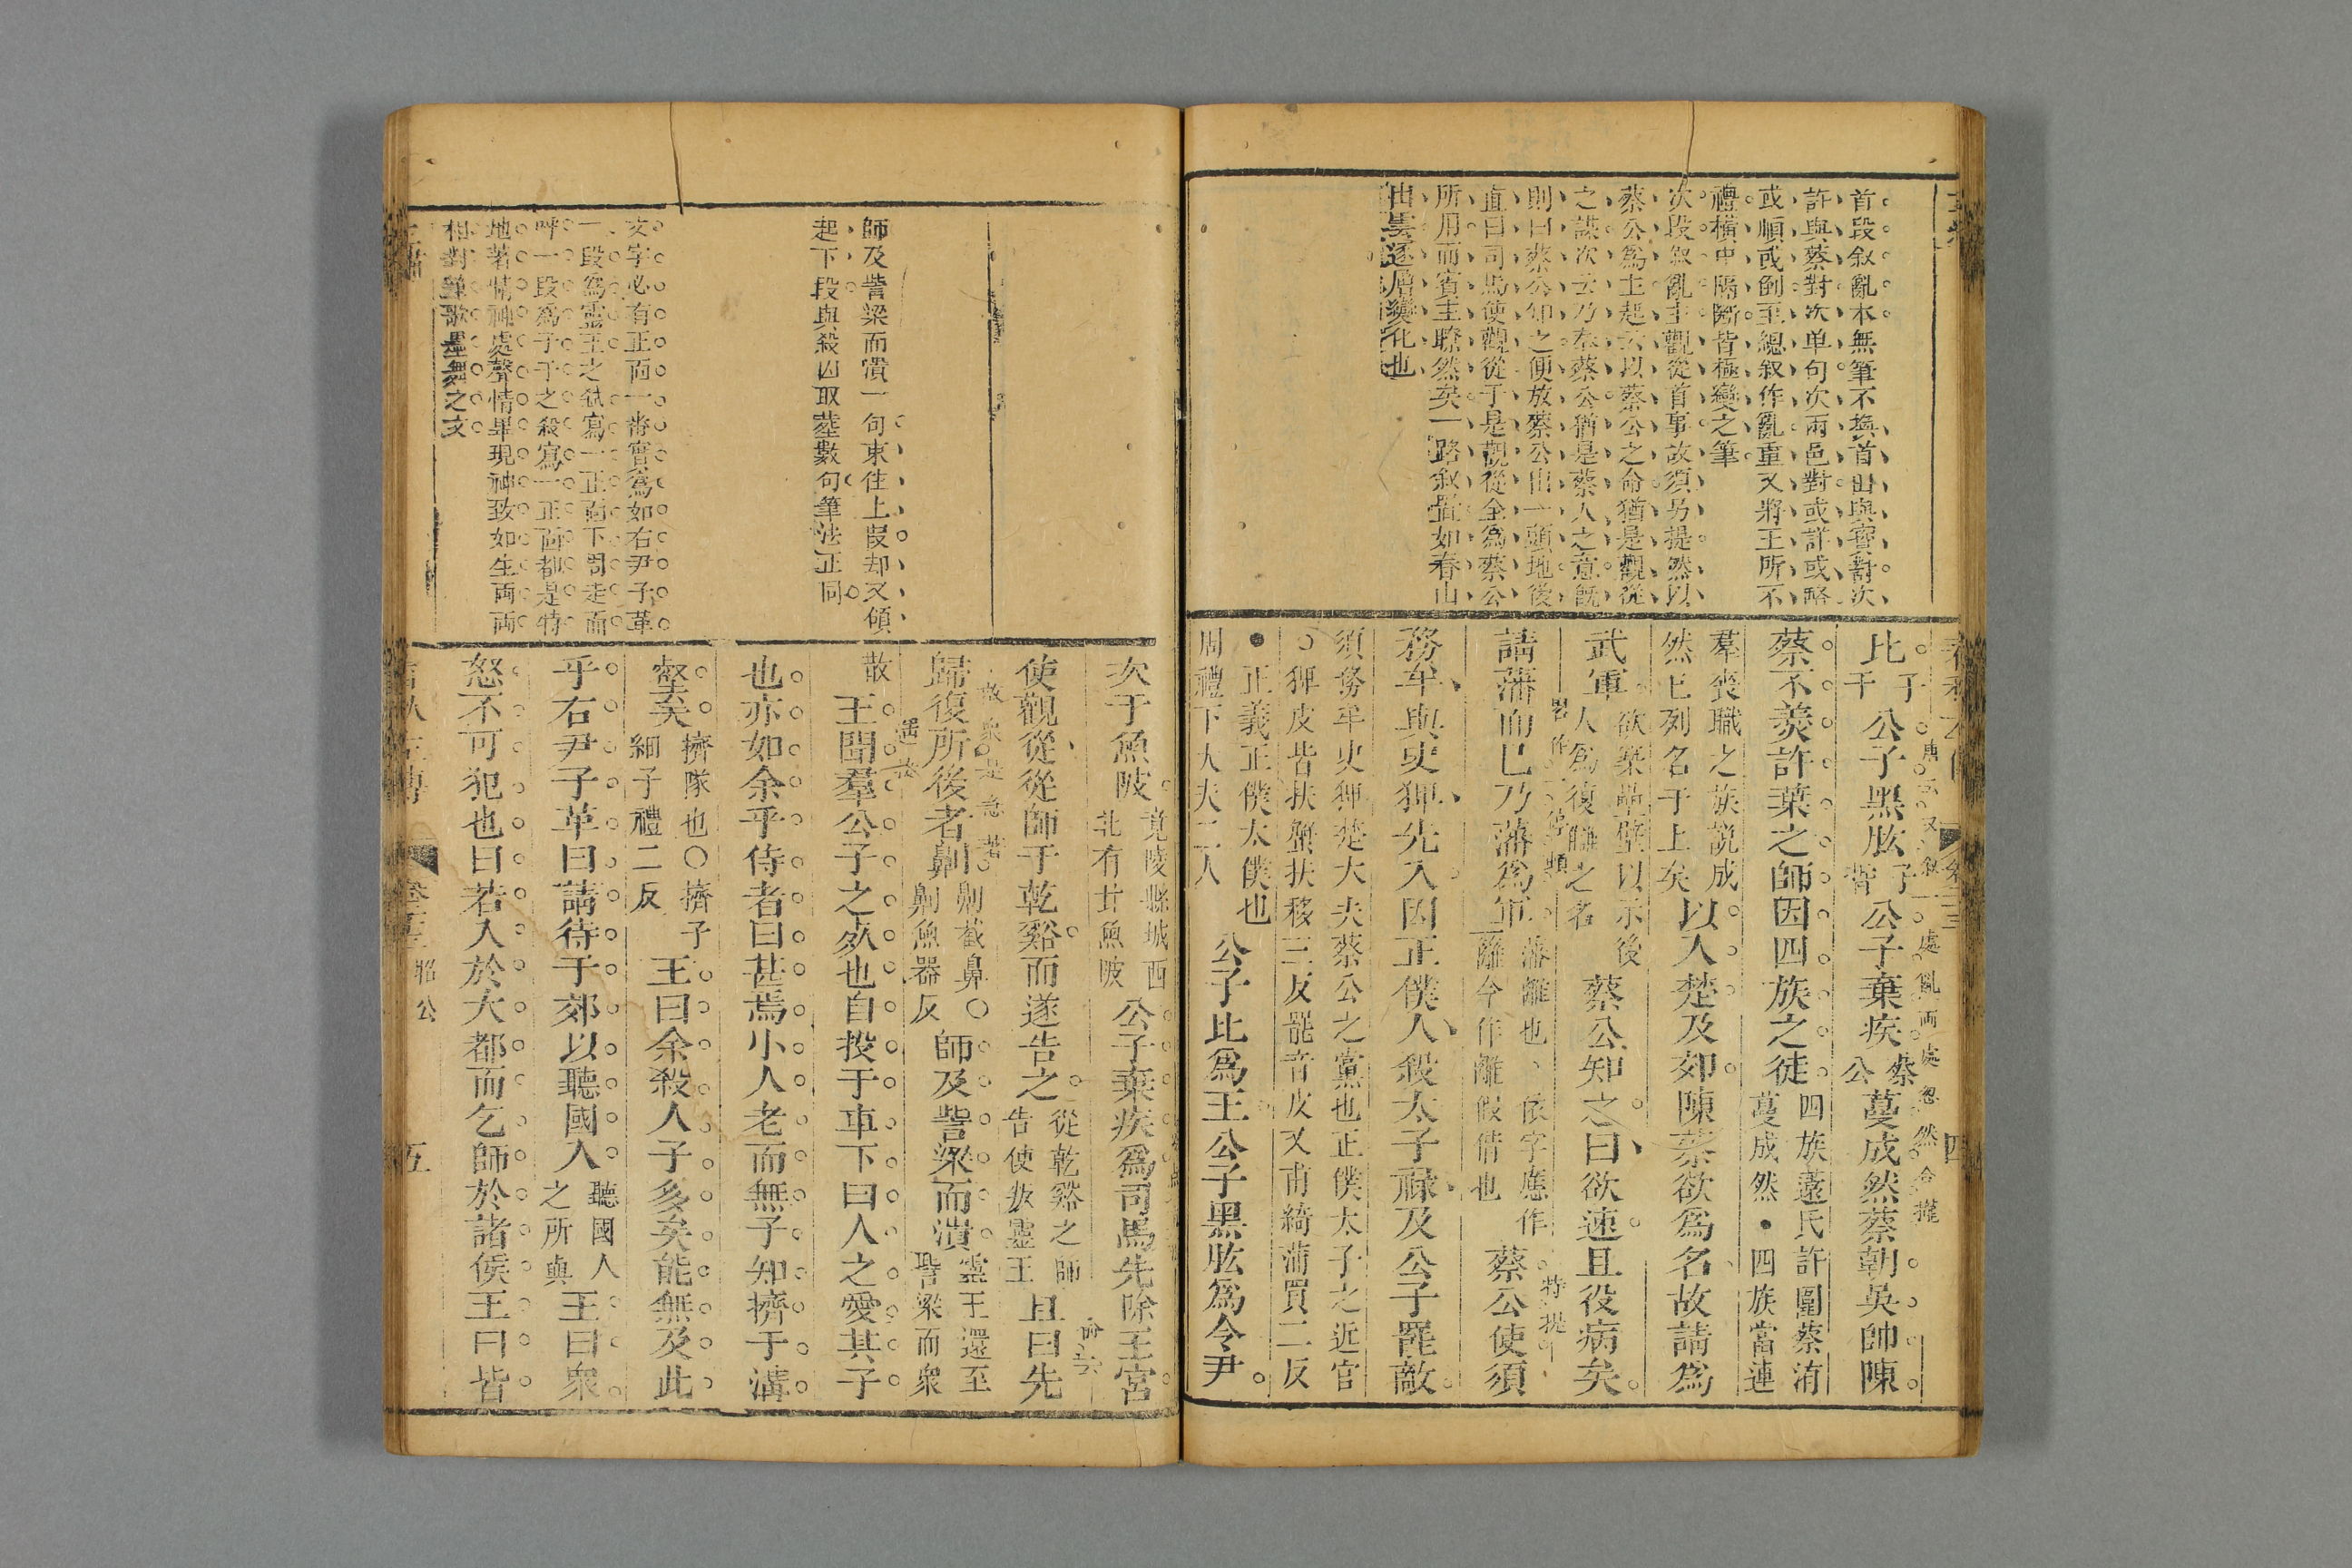 首段叙亂本無筆不換首田與寶對次
許與蔡對次单句次兩邑對或詳或略
或順或倒至總叙作亂重又將王所不
禮橫中隔斷皆極變之筆
次段叙亂主觀從首事故須另提然以
蔡公爲主起云以蔡公之命猶是觀從
之謀次云乃奉蔡公猶是蔡人之意旣
則曰蔡公知之便放蔡公出一頭地後
直曰司馬使觀從于是觀從全爲蔡公
所用而賓主瞭然矣一路叙置如春山
出雲逐層變化也
比子干公子黑肱子皙公子棄疾蔡公蔓成然蔡朝吳帥陳
蔡不羹許葉之師因四族之徒四族薳氏許圍蔡洧蔓成然●四族當連
羣喪職之族說成然已列名于上矣以入楚及郊陳蔡欲爲名故請爲
武軍欲築壘壁以示後人爲復讎之名蔡公知之曰欲速且役病矣
請藩而已乃藩爲軍藩籬也依字應作籬今作離假借也蔡公使須
務牟與史猈先入因正僕人殺太子祿及公子罷敵
須務牟史猈楚大夫蔡公之黨也正僕太子之近官
○猈皮皆扶蟹扶移三反罷音皮又甫綺蒲買二反
●正義正僕太僕也周禮下大夫二人公子比爲王公子黑肱爲令尹
師及訾梁而潰一句束住上段却又傾
起下段與殺囚取蔡數句筆法正同
文字必有正面一番實爲如右尹子革
一段爲靈王之弒寫一正面下周走而
呼一段爲子干之殺寫一正面都是特
地著情神處聲情畢現神致如生兩兩
相對筆歌墨舞之文
次于魚陂竟陵縣城西北有甘魚陂公子棄疾爲司馬先除王宮
使觀從從師于乾谿而遂告之從乾谿之師告使叛靈王且曰先
歸復所後者劓劓截鼻○劓魚器反師及訾梁而潰靈王還至訾梁而衆
散王聞羣公子之死也自投于車下曰人之愛其子
也亦如余乎侍者曰甚焉小人老而無子知擠于溝
壑矣擠隊也○擠子細子禮二反王曰余殺人子多矣能無及此
乎右尹子革曰請待于郊以聽國人聽國人之所與王曰衆
怒不可犯也曰若入於大都而乞師於諸侯王曰皆
昭公
五